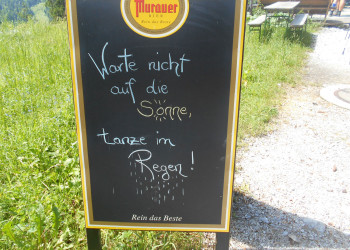 Murauer
BIER
Rein das Beste
Warte nicht
auf die
Sonne,
tanze im
Regen!
Rein das Beste